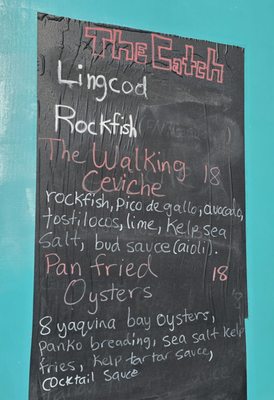 The Catch
Lingcod
Rockfish
The Walking 18
Ceviche
rockfish, Pico de gallo, avocado,
tostilocos, lime, Kelp sea
Salt, bud sauce (aioli).
Pan fried 18
Oysters
8 yaquina bay oysters,
panko breading, sea salt kelp
fries, kelp tartar sauce,
cocktail sauce